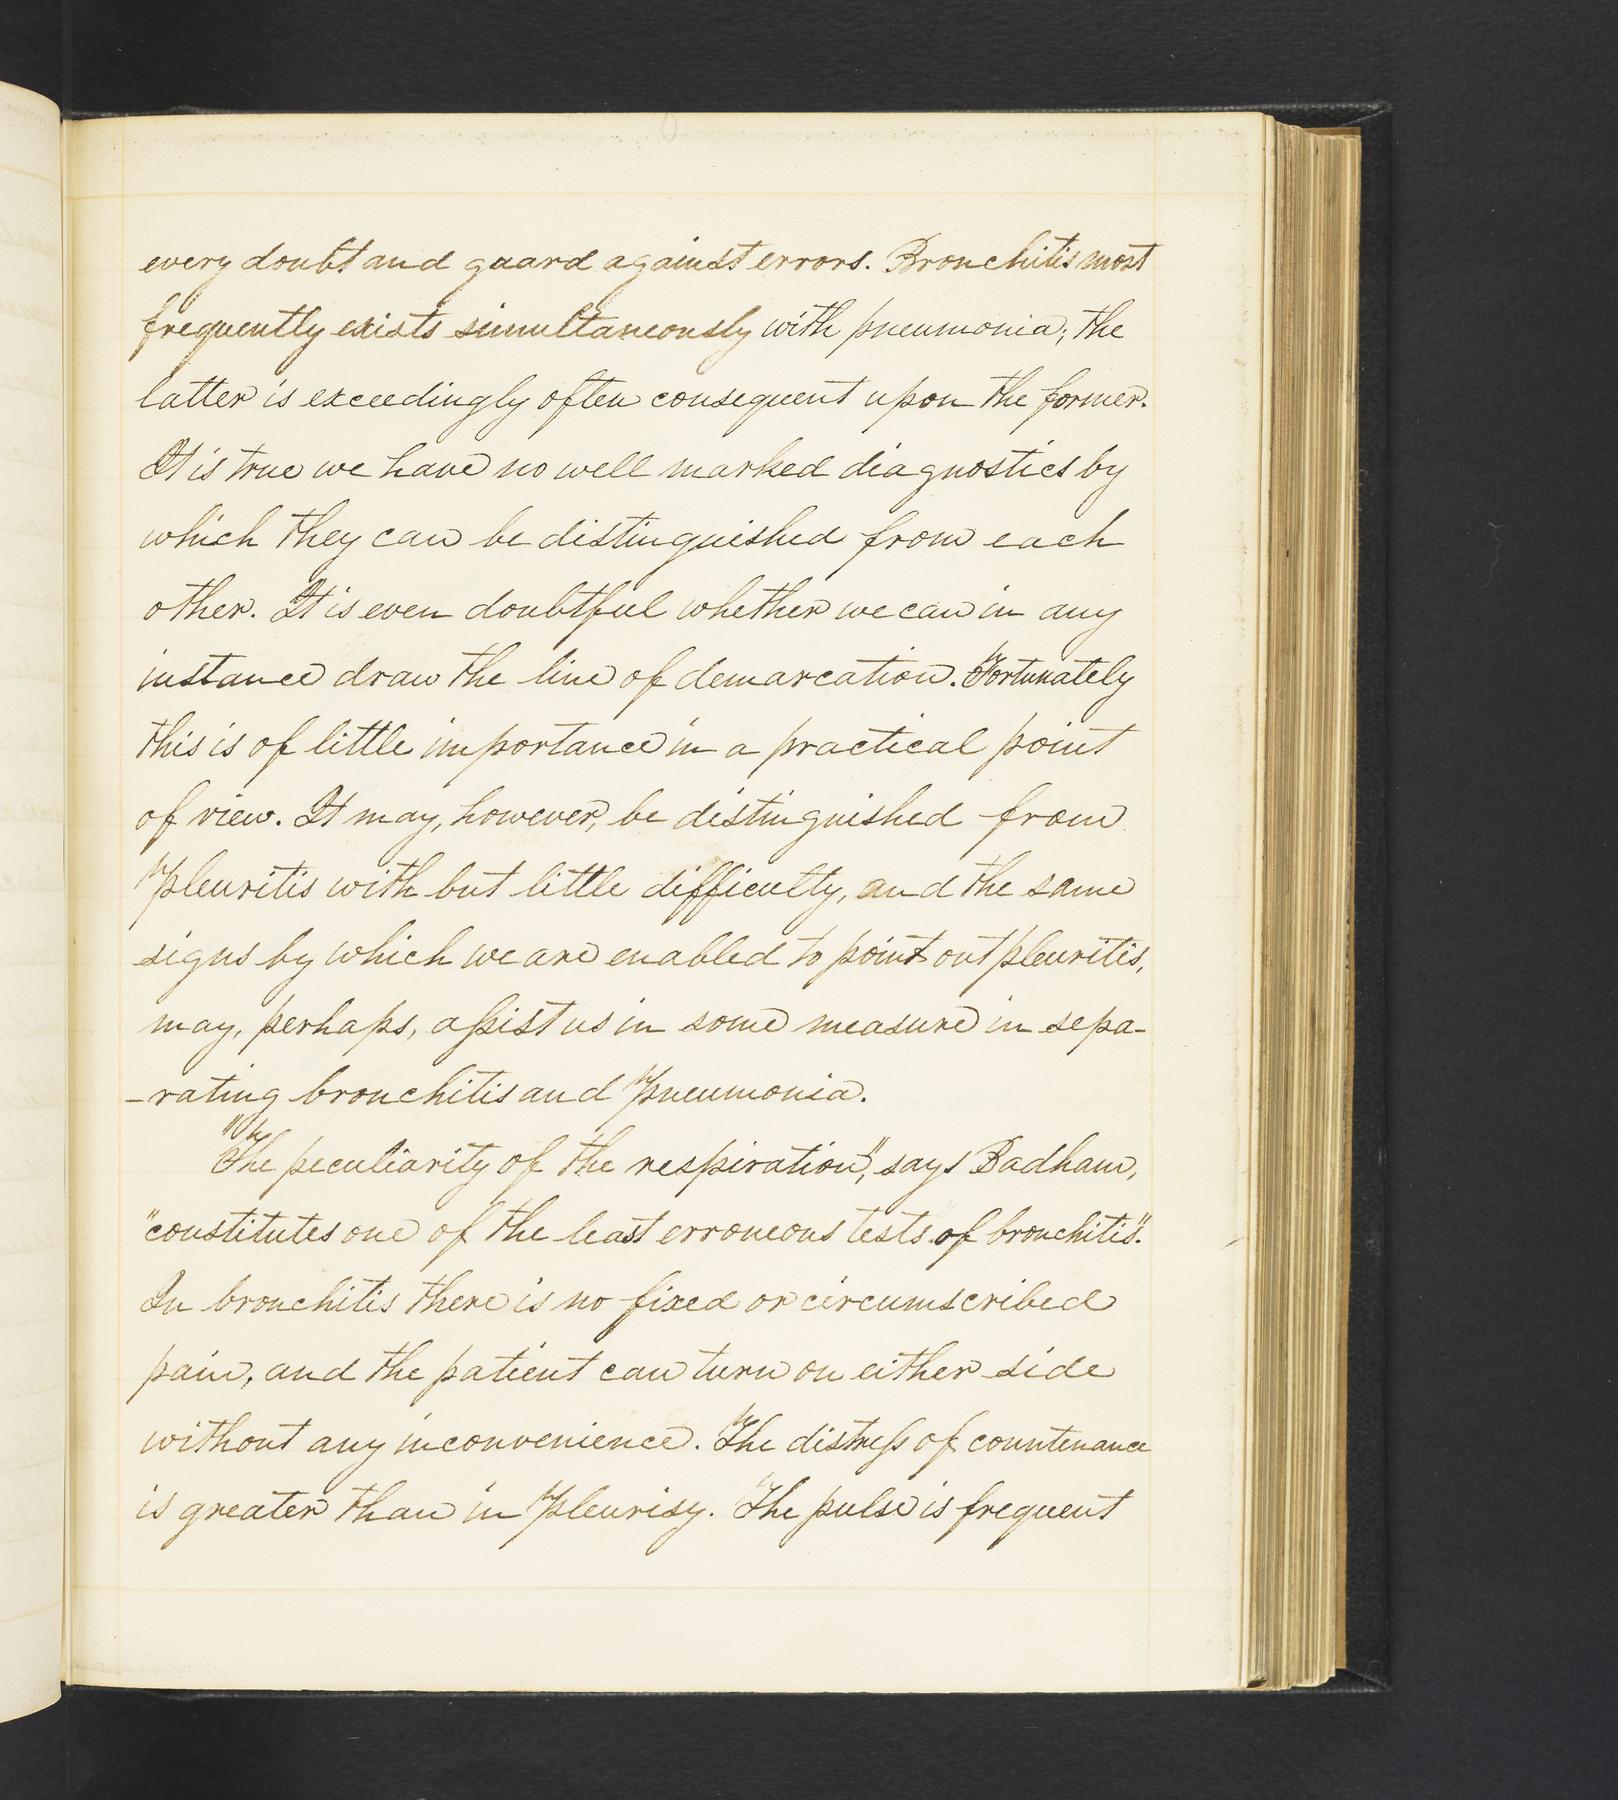 every doubt and guard against errors. Bronchitis most
frequently exists simultaneously with pneumonia; the
latter is exceedingly often consequent upon the former.
It is true we have no well marked diagnostics by
which they can be distinguished from each
other. It is even doubtful whether we can in any
instance draw the line of demarcation. Fortunately
this is of little importance in a practical point
of view. It may, however, be distinguished from
Pleuritis with but little difficulty, and the same
signs by which we are enabled to point out pleuritis,
may, perhaps, assist us in some measure in sepa-
-rating bronchitis and Pneumonia.
"The peculiarity of the respiration", says Badham,
"constitutes one of the least erroneous tests of bronchitis".
In bronchitis there is no fixed or circumscribed
pain, and the patient can turn on either side
without any inconvenience. The distress of countenance
is greater than in Pleurisy. The pulse is frequent